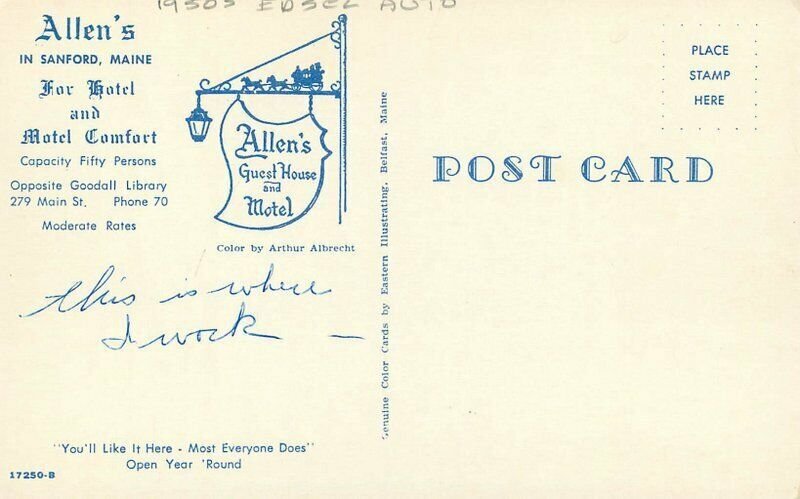 1950s EDSEL AUTO
Allen's
IN SANFORD, MAINE
For Hotel
and
Motel Comfort
Capacity Fifty Persons
Opposite Goodall Library
279 Main St. Phone 70
Moderate Rates
Allen's
Guest House
and
Motel
Color by Arthur Albrecht
this is where
I work —
"You'll Like It Here - Most Everyone Does"
Open Year 'Round
17250-B
Genuine Color Cards by Eastern Illustrating, Belfast, Maine
PLACE
STAMP
HERE
POST CARD